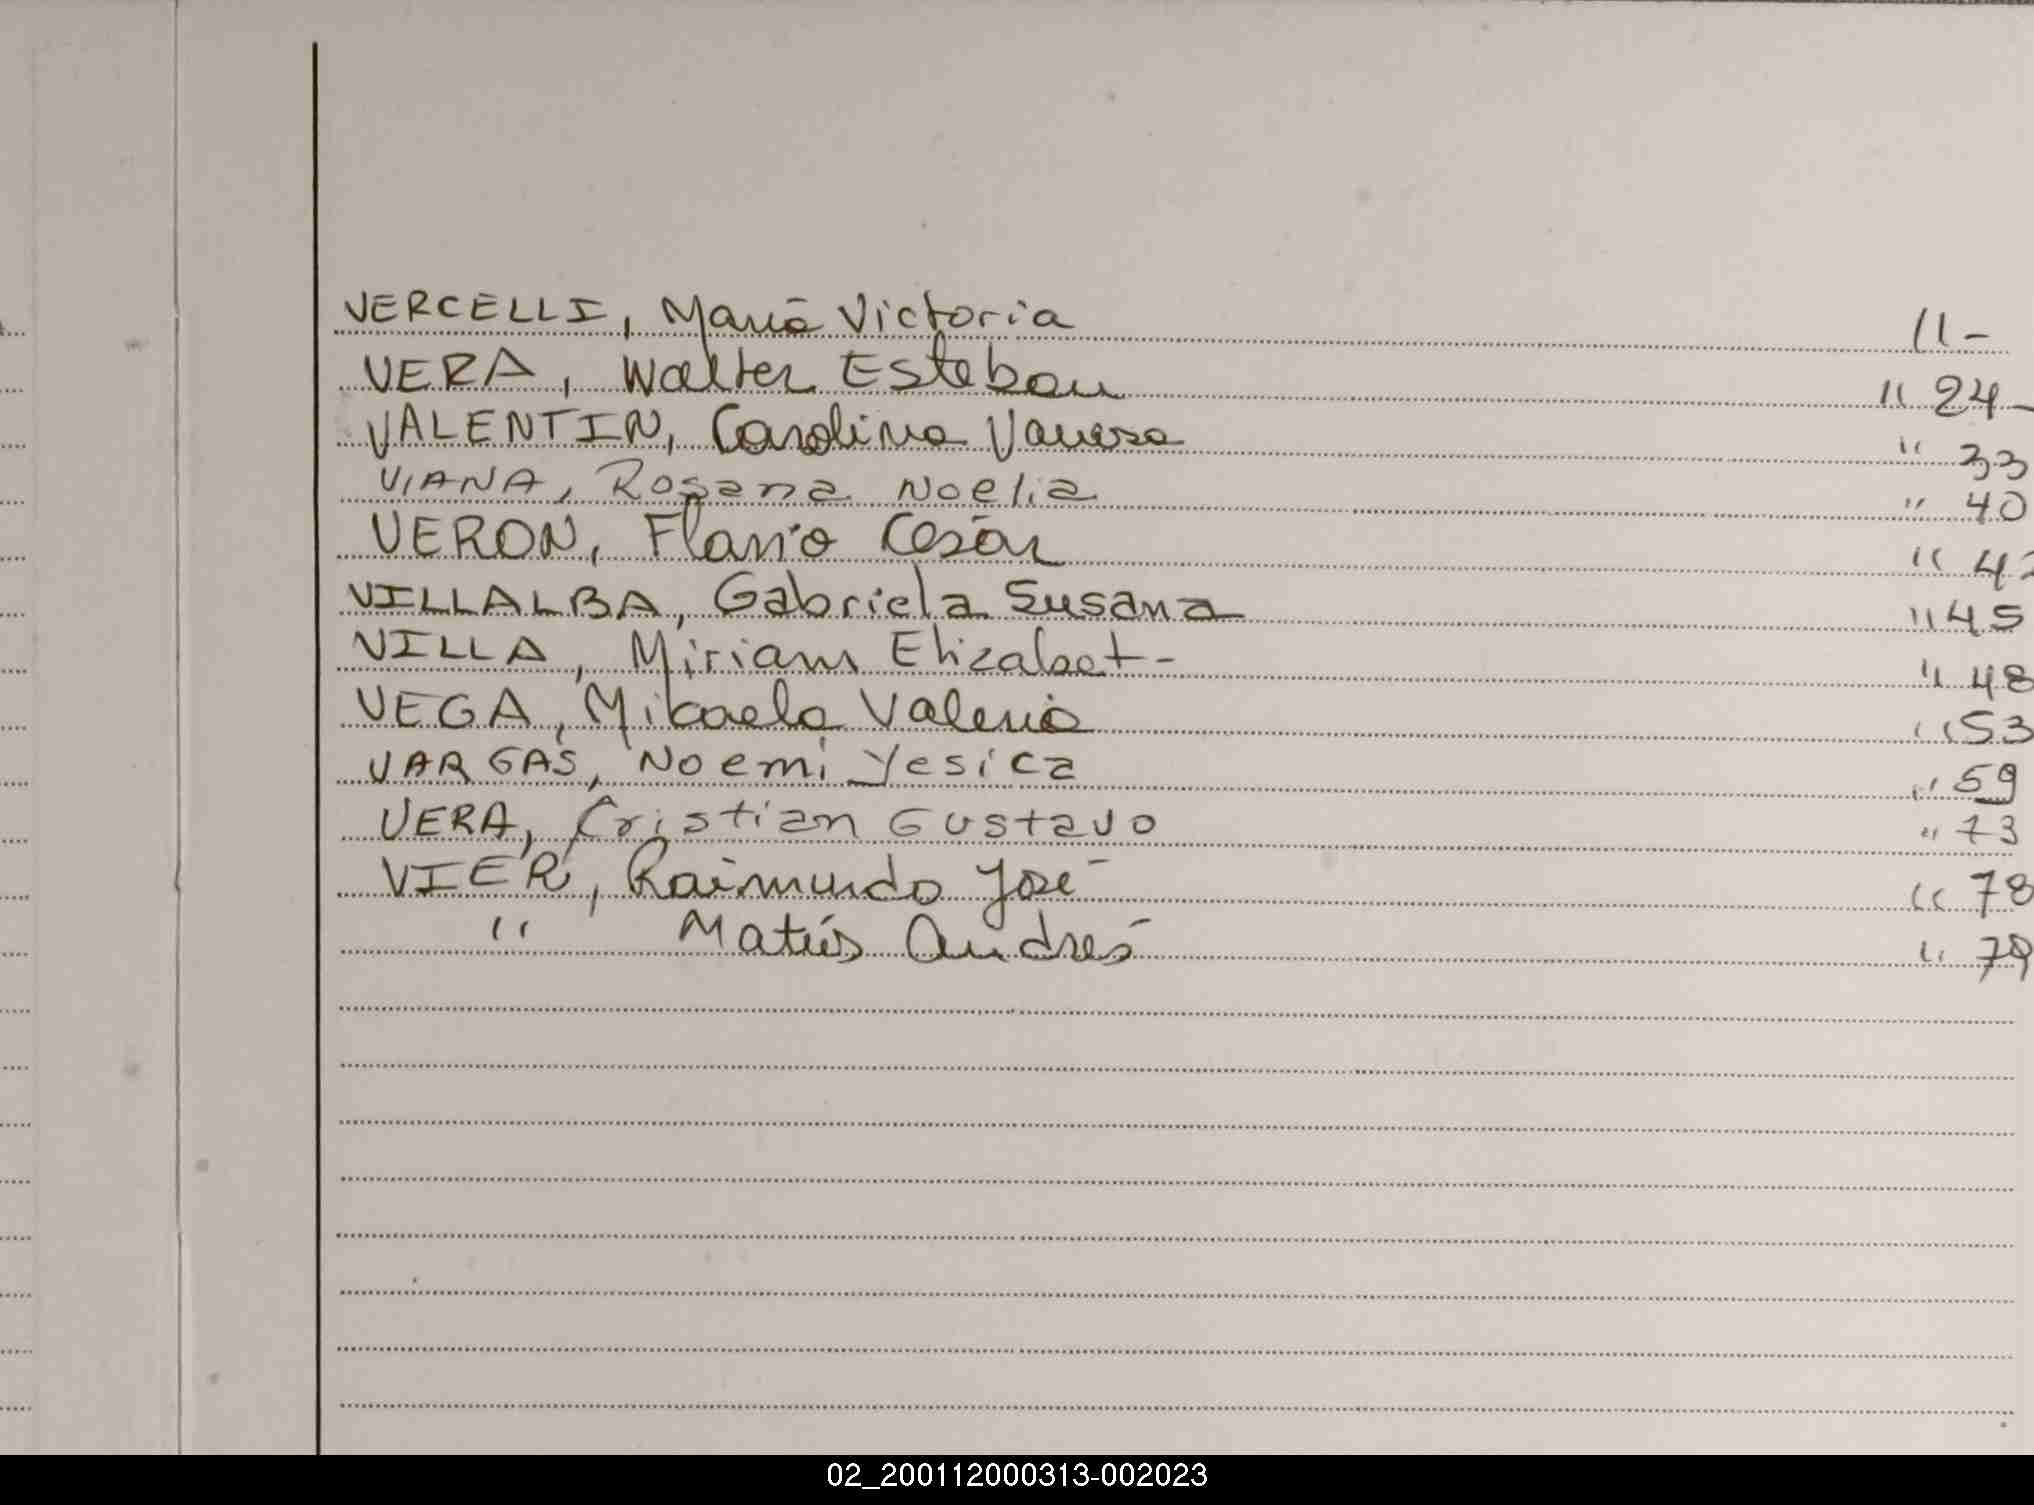 VERCELLI, María Victoria 11-
VERA, Walter Esteban " 24-
VALENTIN, Carolina Vanesa " 33
VIANA, Rosana Noelia " 40
VERON, Flavio Cesár " 42
VILLALBA, Gabriela Susana " 45
VILLA, Miriam Elizabet- " 48
VEGA, Mikaela Valeria " 53
VARGAS, Noemi Yesica " 59
VERA, Cristian Gustavo " 73
VIER, Raimundo José " 78
" Matías Andrés " 79
02_200112000313-002023